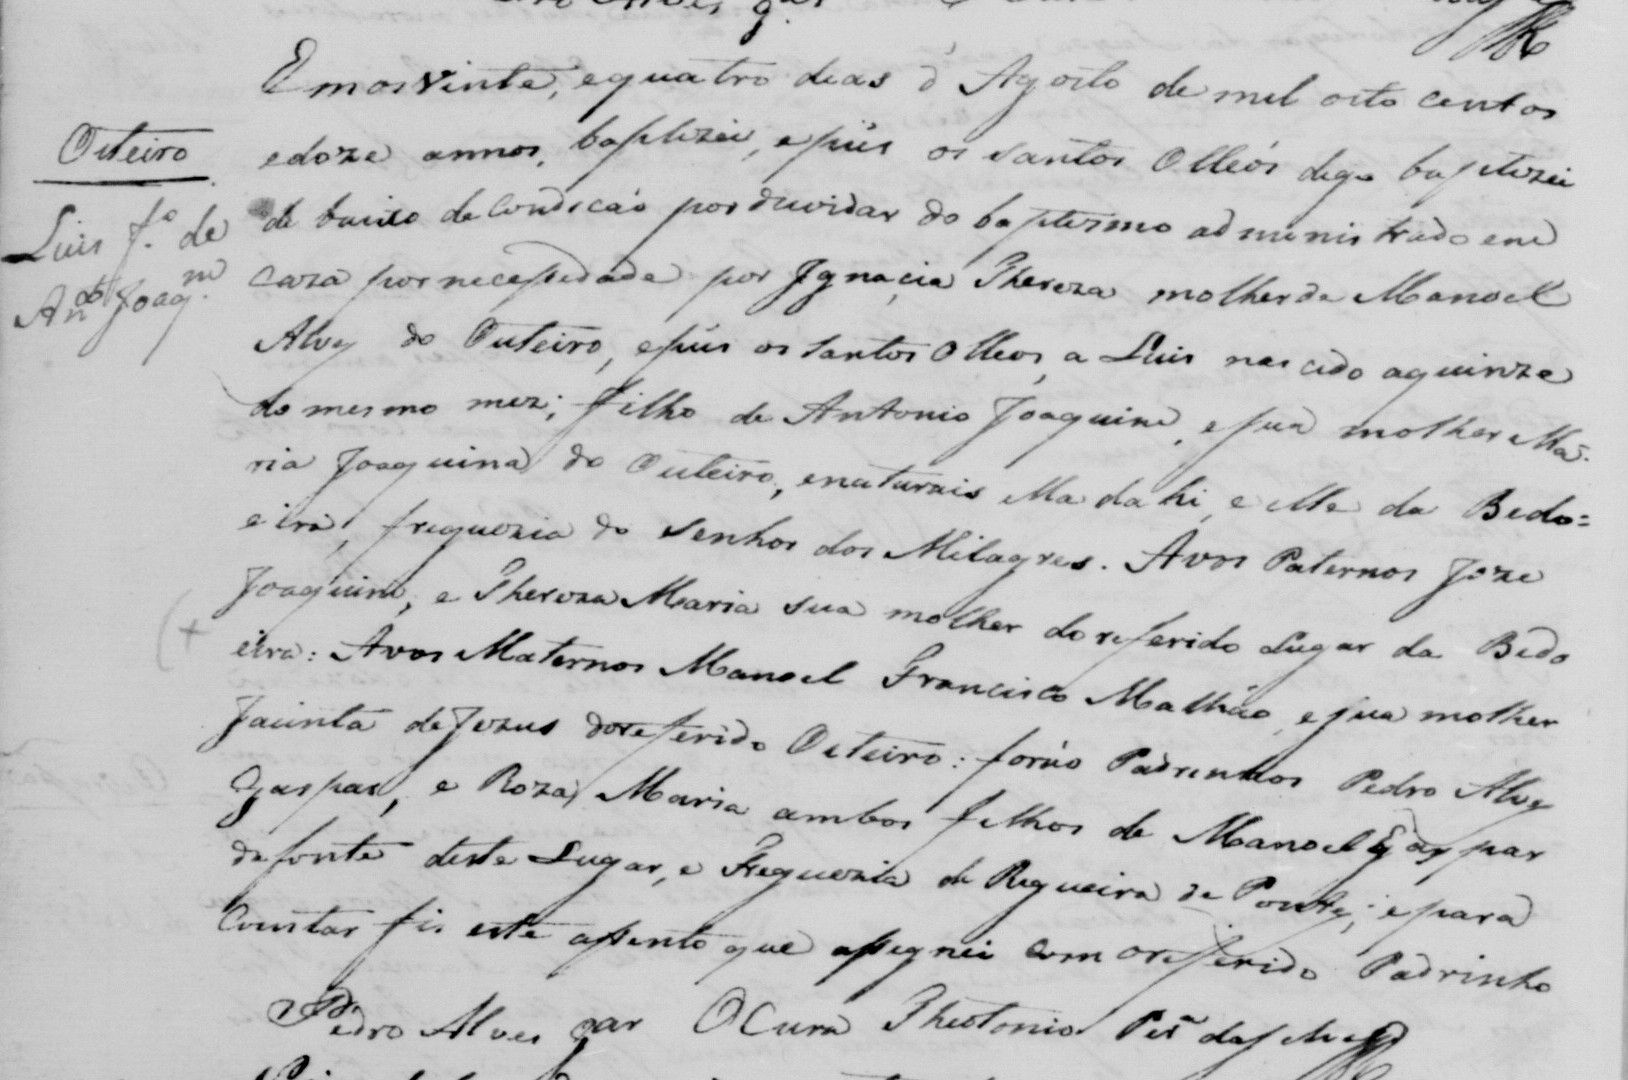 Outeiro
Luis f.º de
An.to Joaq.m
Em os vinte, e quatro deas d' Agosto de mil oito centos
e doze annos, baptizei, e pús os santos Olleos digo baptizei
de baixo de Condicáo por duvidar do baptismo administrado em
caza por necessedade por Ignacia Thereza molher de Manoel
Alvez do Outeiro, e pús os santos Olleos, a Luis nascido a quinze
do mesmo mez; filho de Antonio Joaquim, e sua molher Ma-
ria Joaquina do Outeiro, e naturais ella da hi, e elle da Bedo=
eira, freguezia do Senhor dos Milagres. Avos Paternos Joze
Joaquim, e Thereza Maria sua molher do referido Lugar da Bedo
eira: Avos Maternos Manoel Francisco Malhão, e sua molher
Jacinta de Jezus do referido Oiteiro: foráo Padrinhos Pedro Alvez
Gaspar, e Roza Maria ambos filhos de Manoel Gaspar
da fonte deste Lugar, e Freguezia de Regueira de Pontes; e para
Constar fis este assento que assegnei com o referido Padrinho
Pedro Alves gar O Cura Theotonio Per.ª da